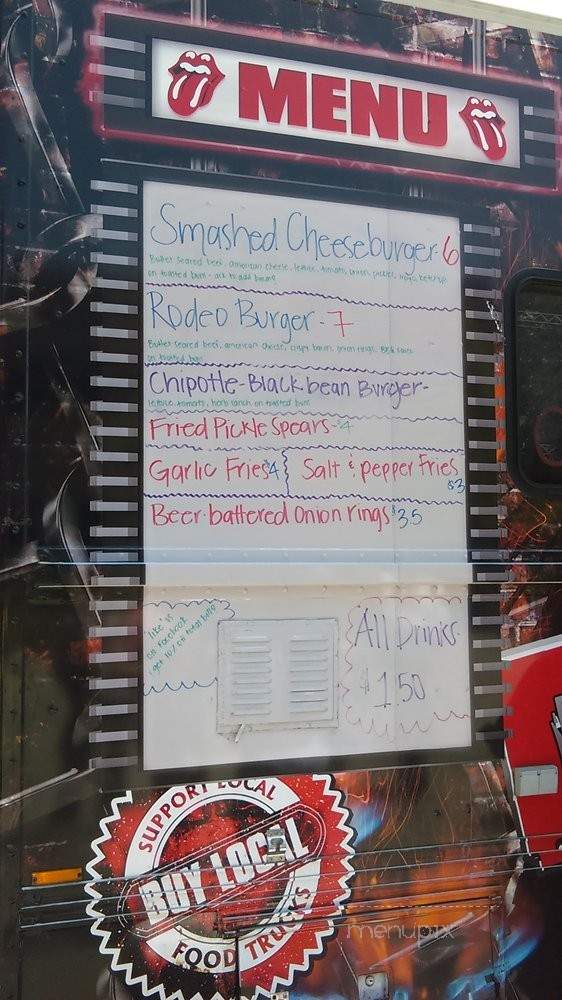 MENU
Smashed Cheeseburger. 6
Butter seared beef, american cheese, lettuce, tomato, onion, pickles, mayo, ketchup
on toasted bun - ask to add bacon
Rodeo Burger - 7
Butter seared beef, american cheese, crispy bacon, onion rings, BBQ sauce
on toasted bun
Chipotle-Black bean Burger-
lettuce, tomato, herb ranch on toasted bun
Fried Pickle Spears - $4
Garlic Fries $4
Salt & pepper Fries
$3
Beer-battered Onion rings $3.5
"like" us
on Facebook
get 10% off total
All Drinks.
$1.50
SUPPORT LOCAL
BUY LOCAL
FOOD TRUCKS
menupix